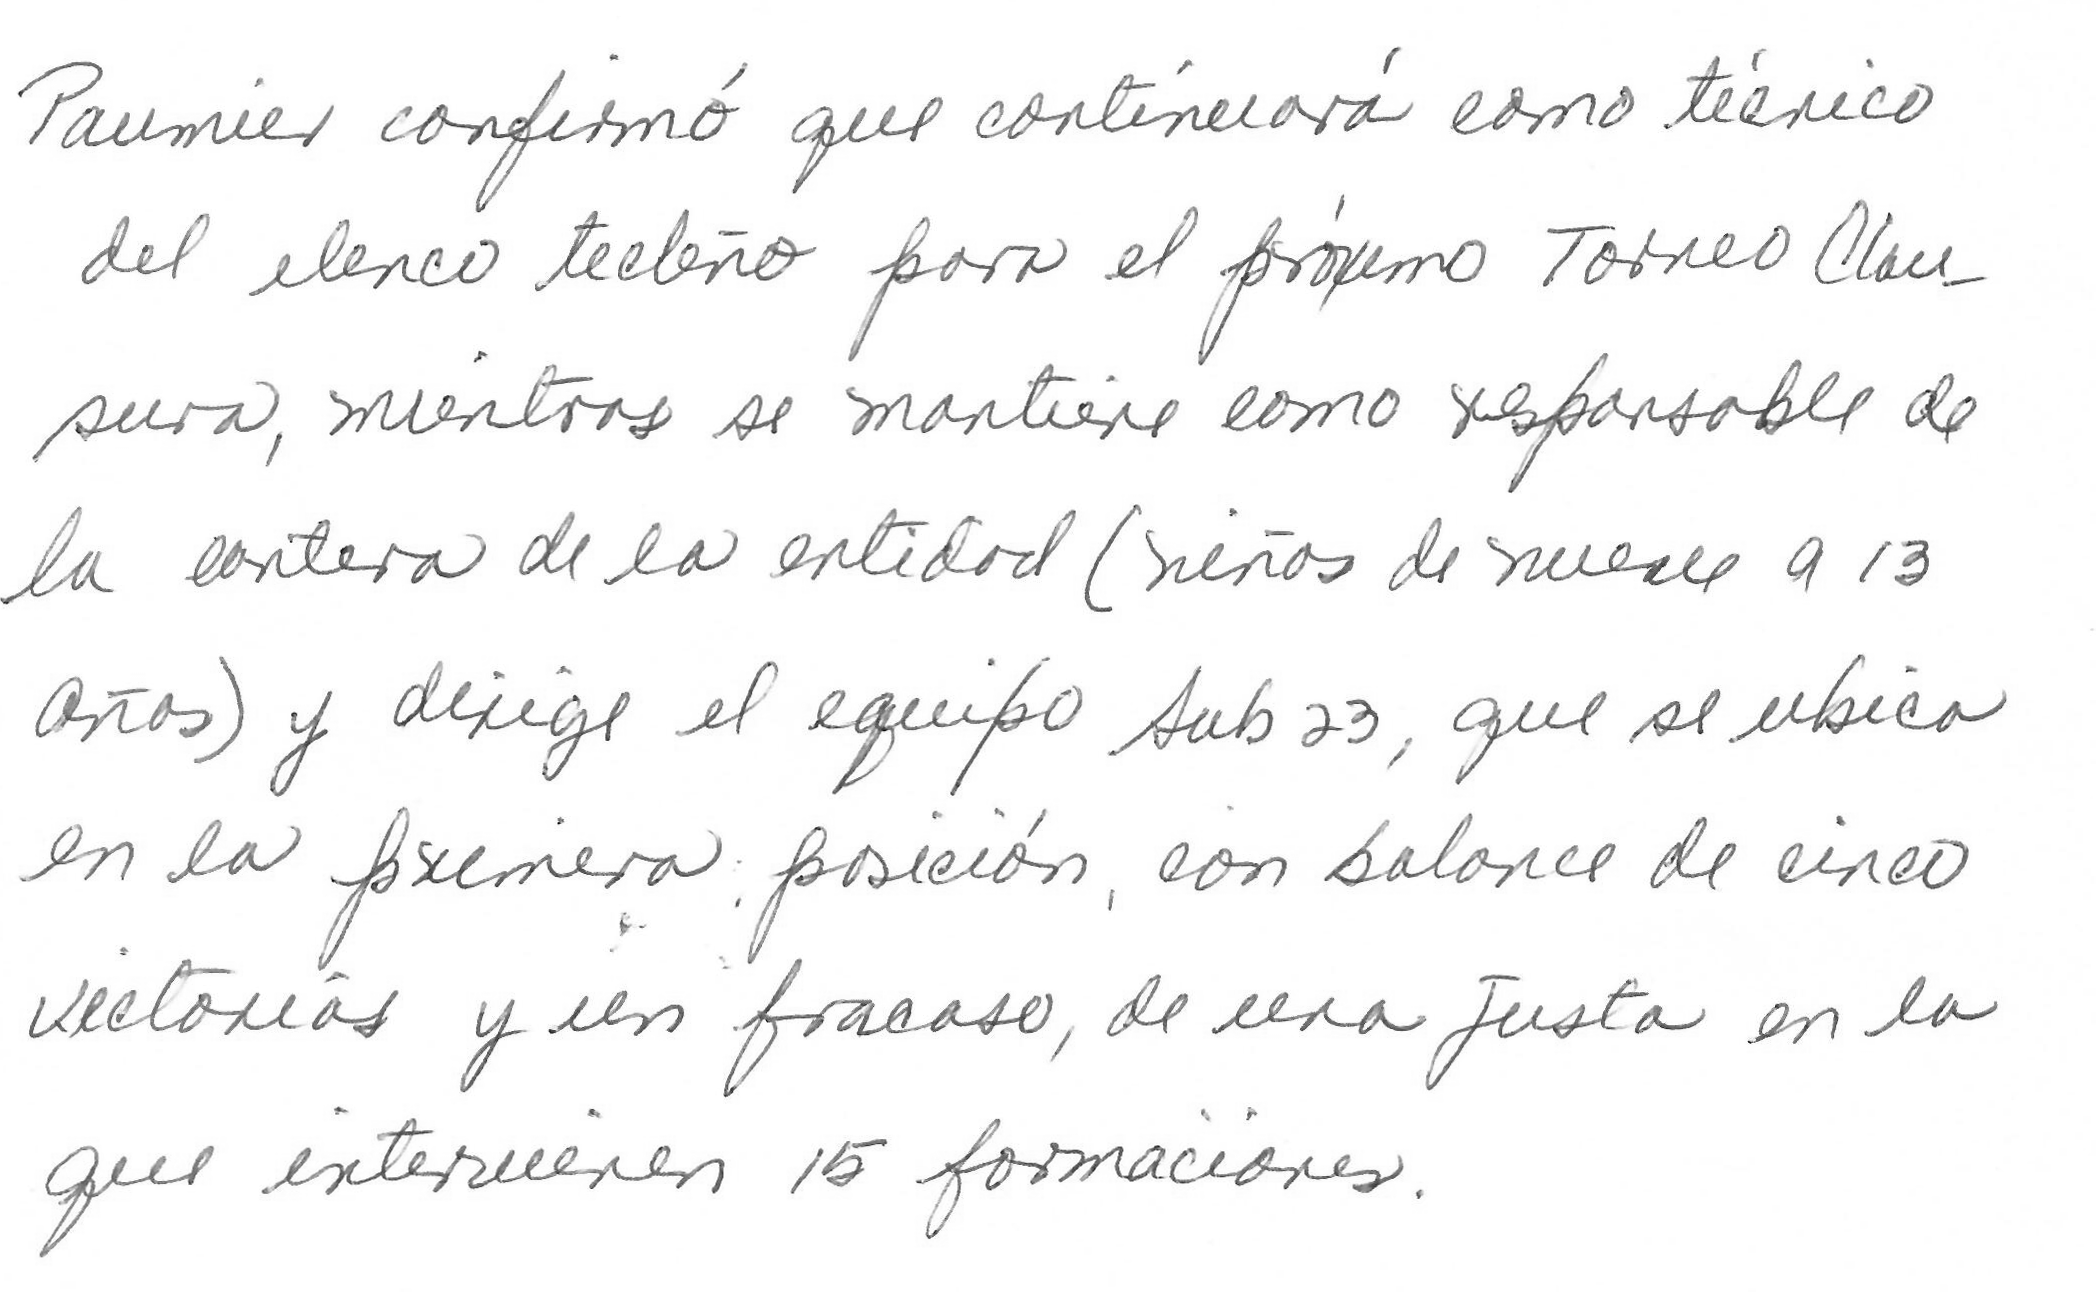 Paumier confirmó que continuará como técnico
del elenco tecleño para el próximo Torneo Clau-
sura, mientras se mantiene como responsable de
la cantera de la entidad (niños de nueve a 13
años) y dirige el equipo Sub 23, que se ubica
en la primera posición, con balance de cinco
victorias y un fracaso, de una justa en la
que intervienen 15 formaciones.